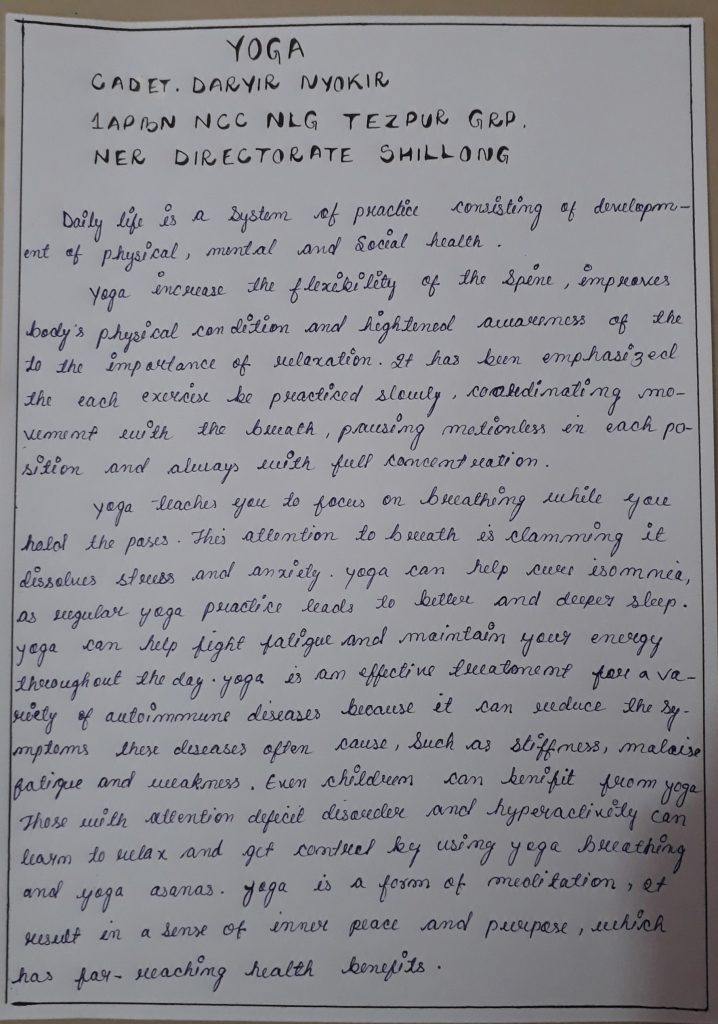 YOGA
CADET. DARYIR NYOKIR
1APBN NCC NLG TEZPUR GRP.
NER DIRECTORATE SHILLONG
Daily life is a System of practice consisting of developm-
ent of physical, mental and Social health.
Yoga increase the flexibility of the Spine, improves
body's physical condition and hightened awareness of the
to the importance of relaxation. It has been emphasized
the each exercise be practiced slowly, coordinating mo-
vement with the breath, pausing motionless in each po-
sition and always with full concentration.
yoga teaches you to focus on breathing while you
hold the poses. This attention to breath is clamming it
dissolves stress and anxiety. yoga can help cure isomnia,
as regular yoga practice leads to better and deeper sleep.
yoga can help fight fatigue and maintain your energy
throughout the day. yoga is an effective treatment for a va-
riety of autoimmune diseases because it can reduce the sy-
mptoms these diseases often cause, Such as stiffness, malaise
fatigue and weakness. Even children can benifit from yoga
Those with attention deficit disorder and hyperactivity can
learn to relax and get control by using yoga breathing
and yoga asanas. yoga is a form of meditation, et
result in a sense of inner peace and purpose, which
has far-reaching health benefits.